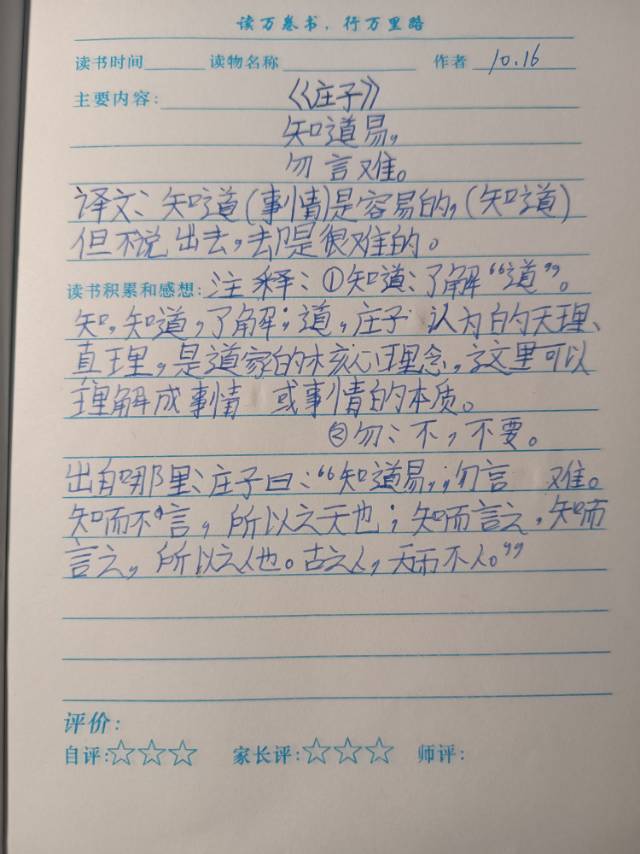 读万卷书，行万里路
读书时间 读物名称 作者 10.16
主要内容: 《庄子》
知道易，
勿言难。
译文：知道(事情)是容易的，(知道)
但不说出去，却是很难的。
读书积累和感想: 注释：①知道：了解“道”。
知，知道，了解；道，庄子 认为的天理、
真理，是道家的核心理念，这里可以
理解成事情 或事情的本质。
②勿：不，不要。
出自哪里：庄子曰：“知道易，勿言 难。
知而不言，所以之天也；知而言之，知而
言之，所以之人也。古之人，天而不人。”
评价:
自评:☆☆☆ 家长评:☆☆☆ 师评: